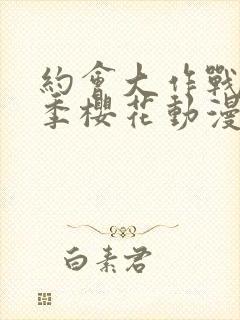 約會大作戰
季櫻花動漫
白素君